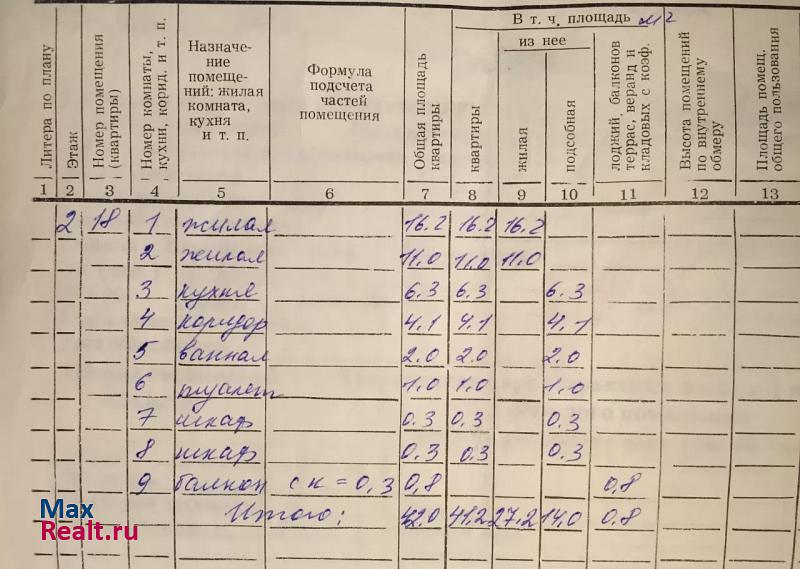 В т. ч. площадь м2
из нее
Литера по плану
Этаж
Номер помещения (квартиры)
Номер комнаты, кухни, корид. и т. п.
Назначе-
ние
помеще-
ний: жилая
комната,
кухня
и т. п.
Формула
подсчета
частей
помещения
Общая площадь квартиры
квартиры
жилая
подсобная
лоджий, балконов террас, веранд и кладовых с коэф.
Высота помещений по внутреннему обмеру
Площадь помещ. общего пользования
1 2 3 4 5 6 7 8 9 10 11 12 13
2 18 1 жилая 16.2 16.2 16.2
2 жилая 11.0 11.0 11.0
3 кухня 6.3 6.3 6.3
4 коридор 4.1 4.1 4.1
5 ванная 2.0 2.0 2.0
6 туалет 1.0 1.0 1.0
7 шкаф 0.3 0.3 0.3
8 шкаф 0.3 0.3 0.3
9 балкон с к = 0,3 0,8 0,8
Итого: 42.0 41.2 27.2 14.0 0.8
Max
Realt.ru